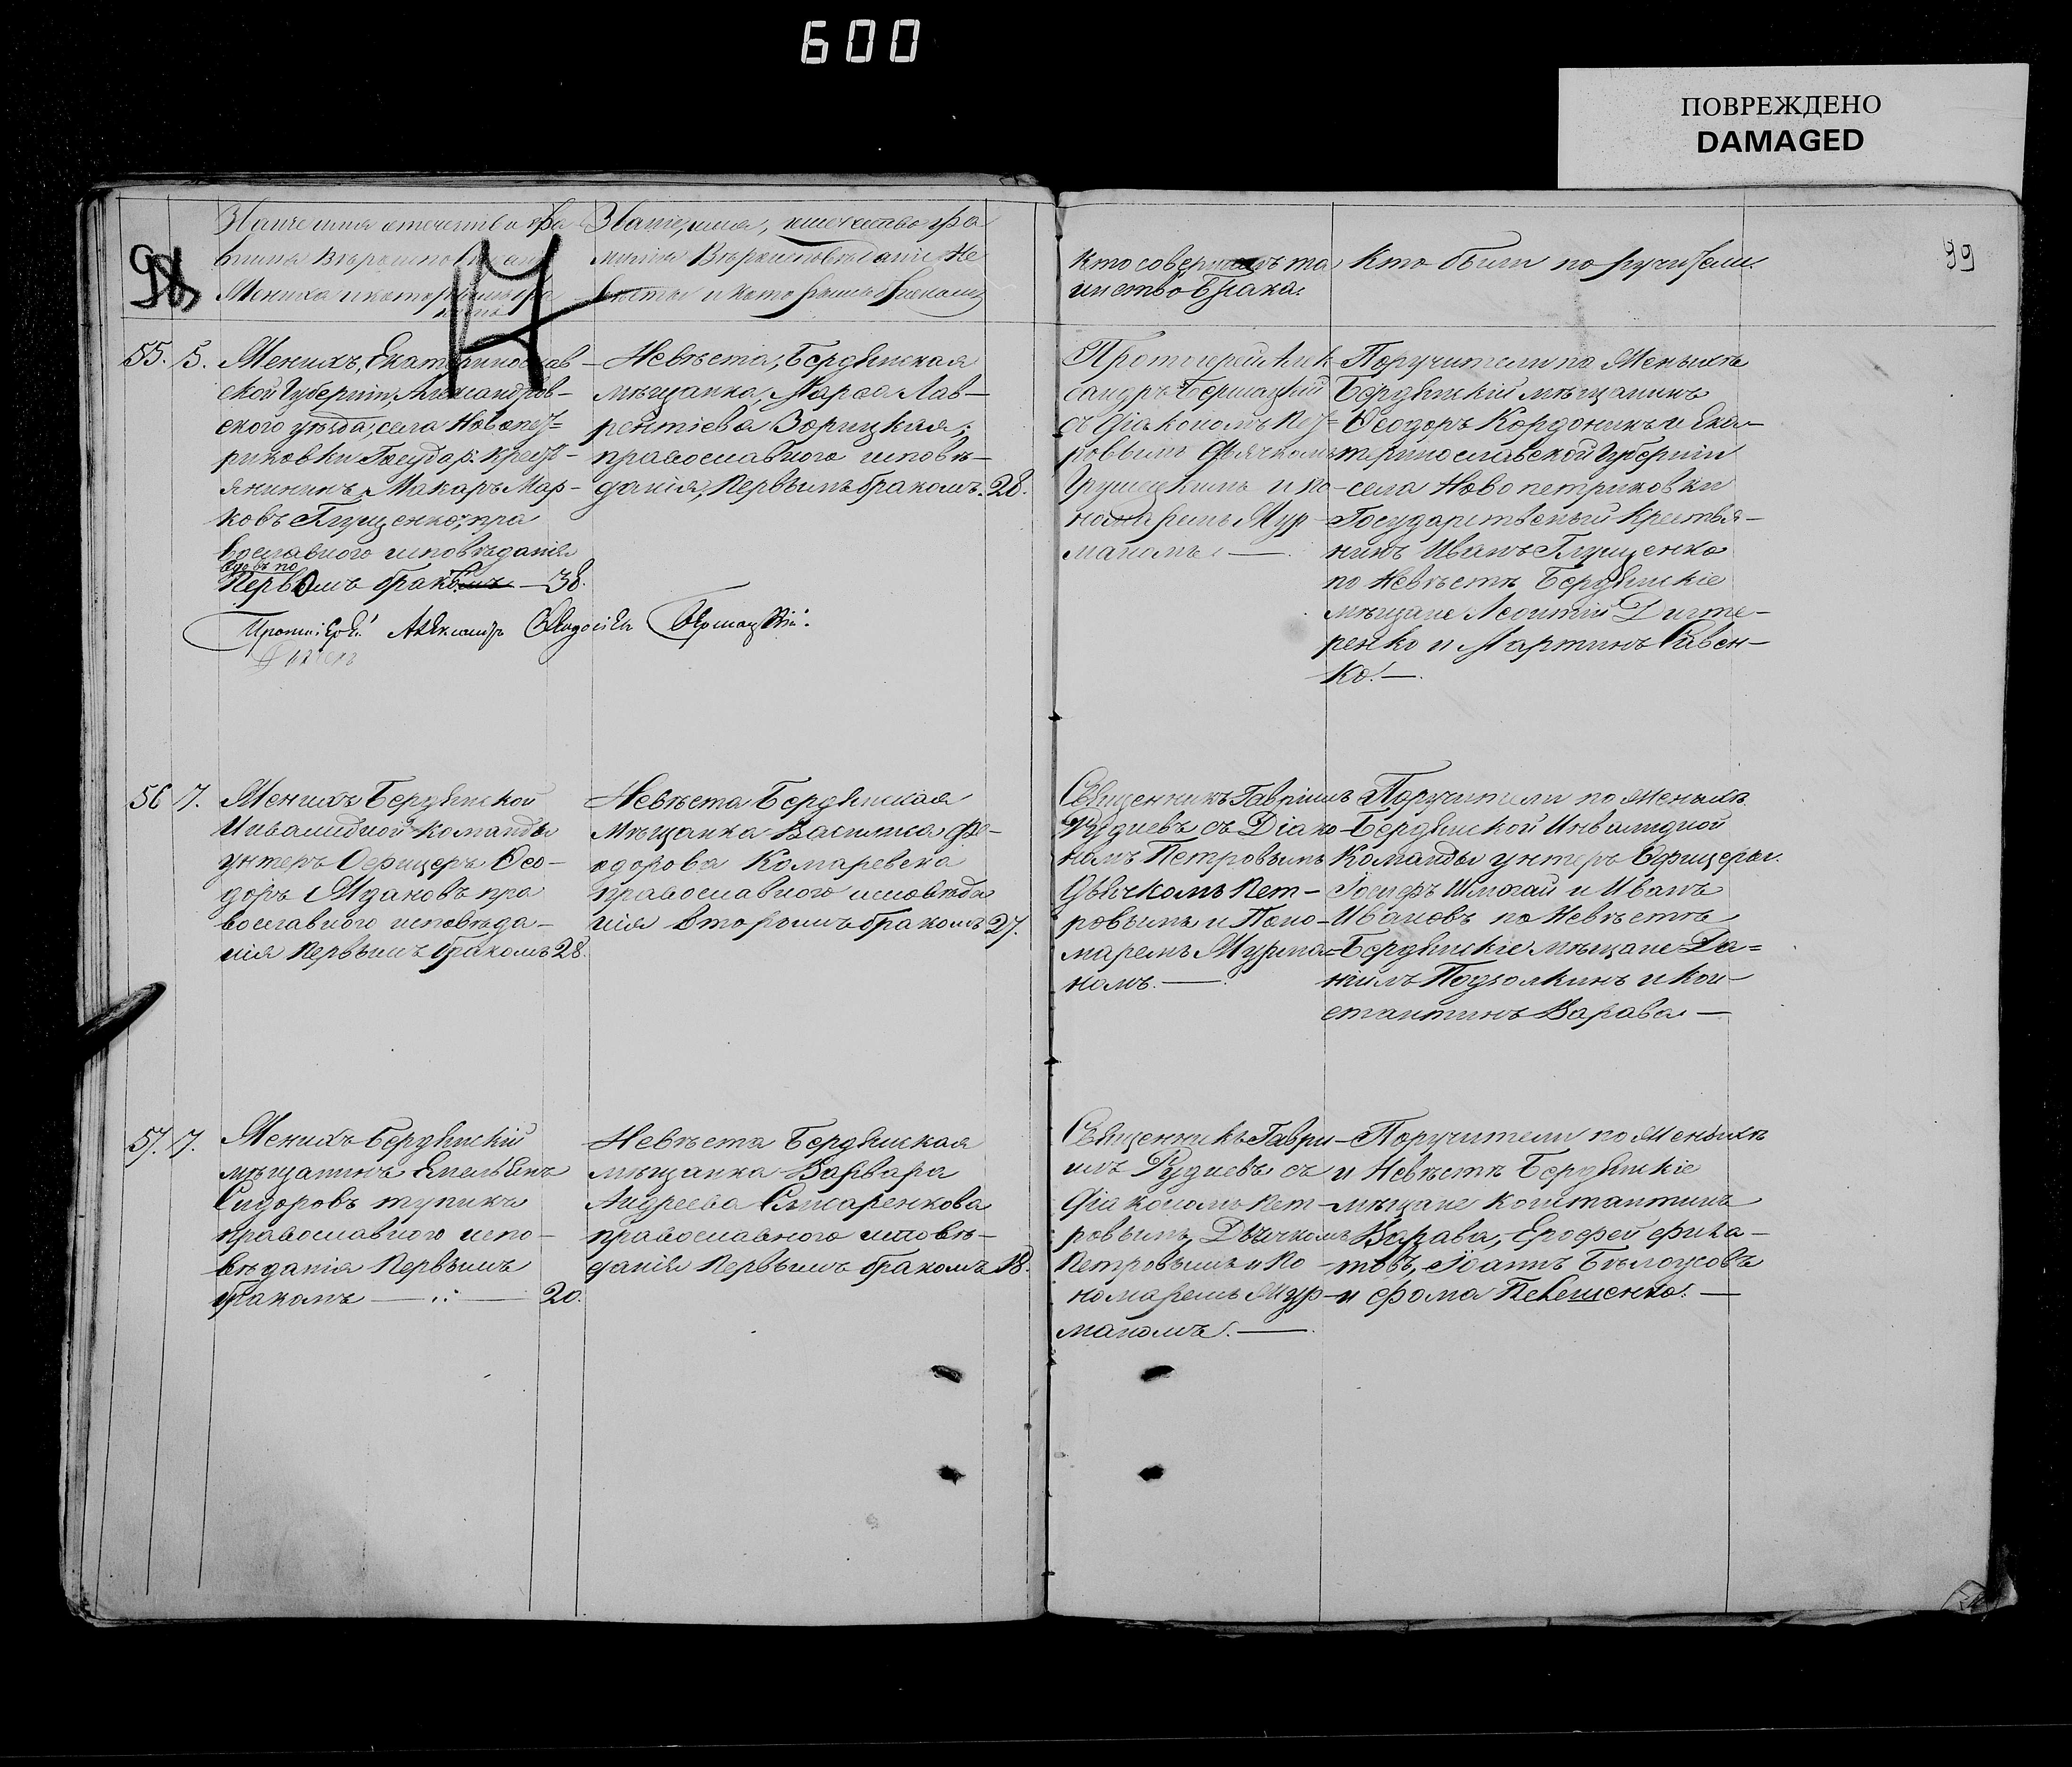 600
ПОВРЕЖДЕНО
DAMAGED
98
99
Званіе имя отечество и фа
милія Вѣроисповѣданіе
Жениха и которымъ бра
комъ
Званіе, имя, отечество и фа
милія Вѣроисповѣданіе Не
вѣсты и которымъ бракомъ
Кто совершалъ та
инство Брака.
Кто были поручители.
55. 5.
Женихъ, Екатеринослав
ской Губерніи, Александров-
скаго уѣзда, села Новопет=
риковки Государ. крест-
янинъ Макаръ Мар-
ковъ Глущенко, пра
вославнаго исповѣданія
вдовъ по
Первомъ бракѣ — 38.
Протоіерей Александръ Бершацкій.
Невѣста, Бердянская
мѣщанка, Марѳа Лав-
рентіева Зорицкая,
православнаго исповѣ-
данія, Первымъ бракомъ. 28.
Протоіерей Алек
сандръ Бершацкій
съ Діакономъ Пет=
ровымъ Дьячкомъ
Грушецкимъ и по-
намаремъ Мур-
маномъ. —
Поручители по Женихѣ
Бердянскій мѣщанинъ
Ѳеодоръ Кордоникъ и Ека-
теринославской Губерніи
села Новопетриковки
Государственый Крестья-
нинъ Иванъ Глущенко
по Невѣстѣ Бердянскіе
мѣщане Леонтій Дигте-
ренко и Мартинъ Савен-
ко. —
56 7.
Женихъ Бердянской
Инвалидной Команды
унтеръ Офицеръ Ѳео-
доръ Ждановъ пра
вославнаго исповѣда-
нія Первымъ бракомъ 28.
Невѣста Бердянская
Мѣщанка Василиса Фе-
одорова Комаревска
Православнаго исповѣда
нія вторымъ бракомъ 27.
Священникъ Гавріилъ
Рудневъ съ Діако-
номъ Петровымъ
Дьячкомъ Пет-
ровымъ и Поно-
маремъ Мурма=
номъ. —
Поручители по Женихѣ
Бердянской Инвалидной
Команды унтеръ Офицеры
Іосифъ Шмагай и Иванъ
Ивановъ по Невѣстѣ
Бердянскіе мѣщане Да=
ніилъ Подзолкинъ и Кон-
стантинъ Варава. —
57. 7.
Женихъ Бердянскій
мѣщанинъ Емельянъ
Сидоровъ тупикъ
православнаго испо-
вѣданія Первымъ
бракомъ — 20.
Невѣста Бердянская
мѣщанка Варвара
Андреева Слисаренкова
православнаго исповѣ-
данія Первымъ бракомъ 18.
Священникъ Гаври-
илъ Рудневъ съ
Діакономъ Пет-
ровымъ, Дьячкомъ
Петровымъ и По-
номаремъ Мур-
маномъ. —
Поручители по Женихѣ
и Невѣстѣ Бердянскіе
мѣщане Константинъ
Варава, Ерофей Фила-
товъ, Іоаннъ Бѣлоусовъ
и Фома Пелешенко. —